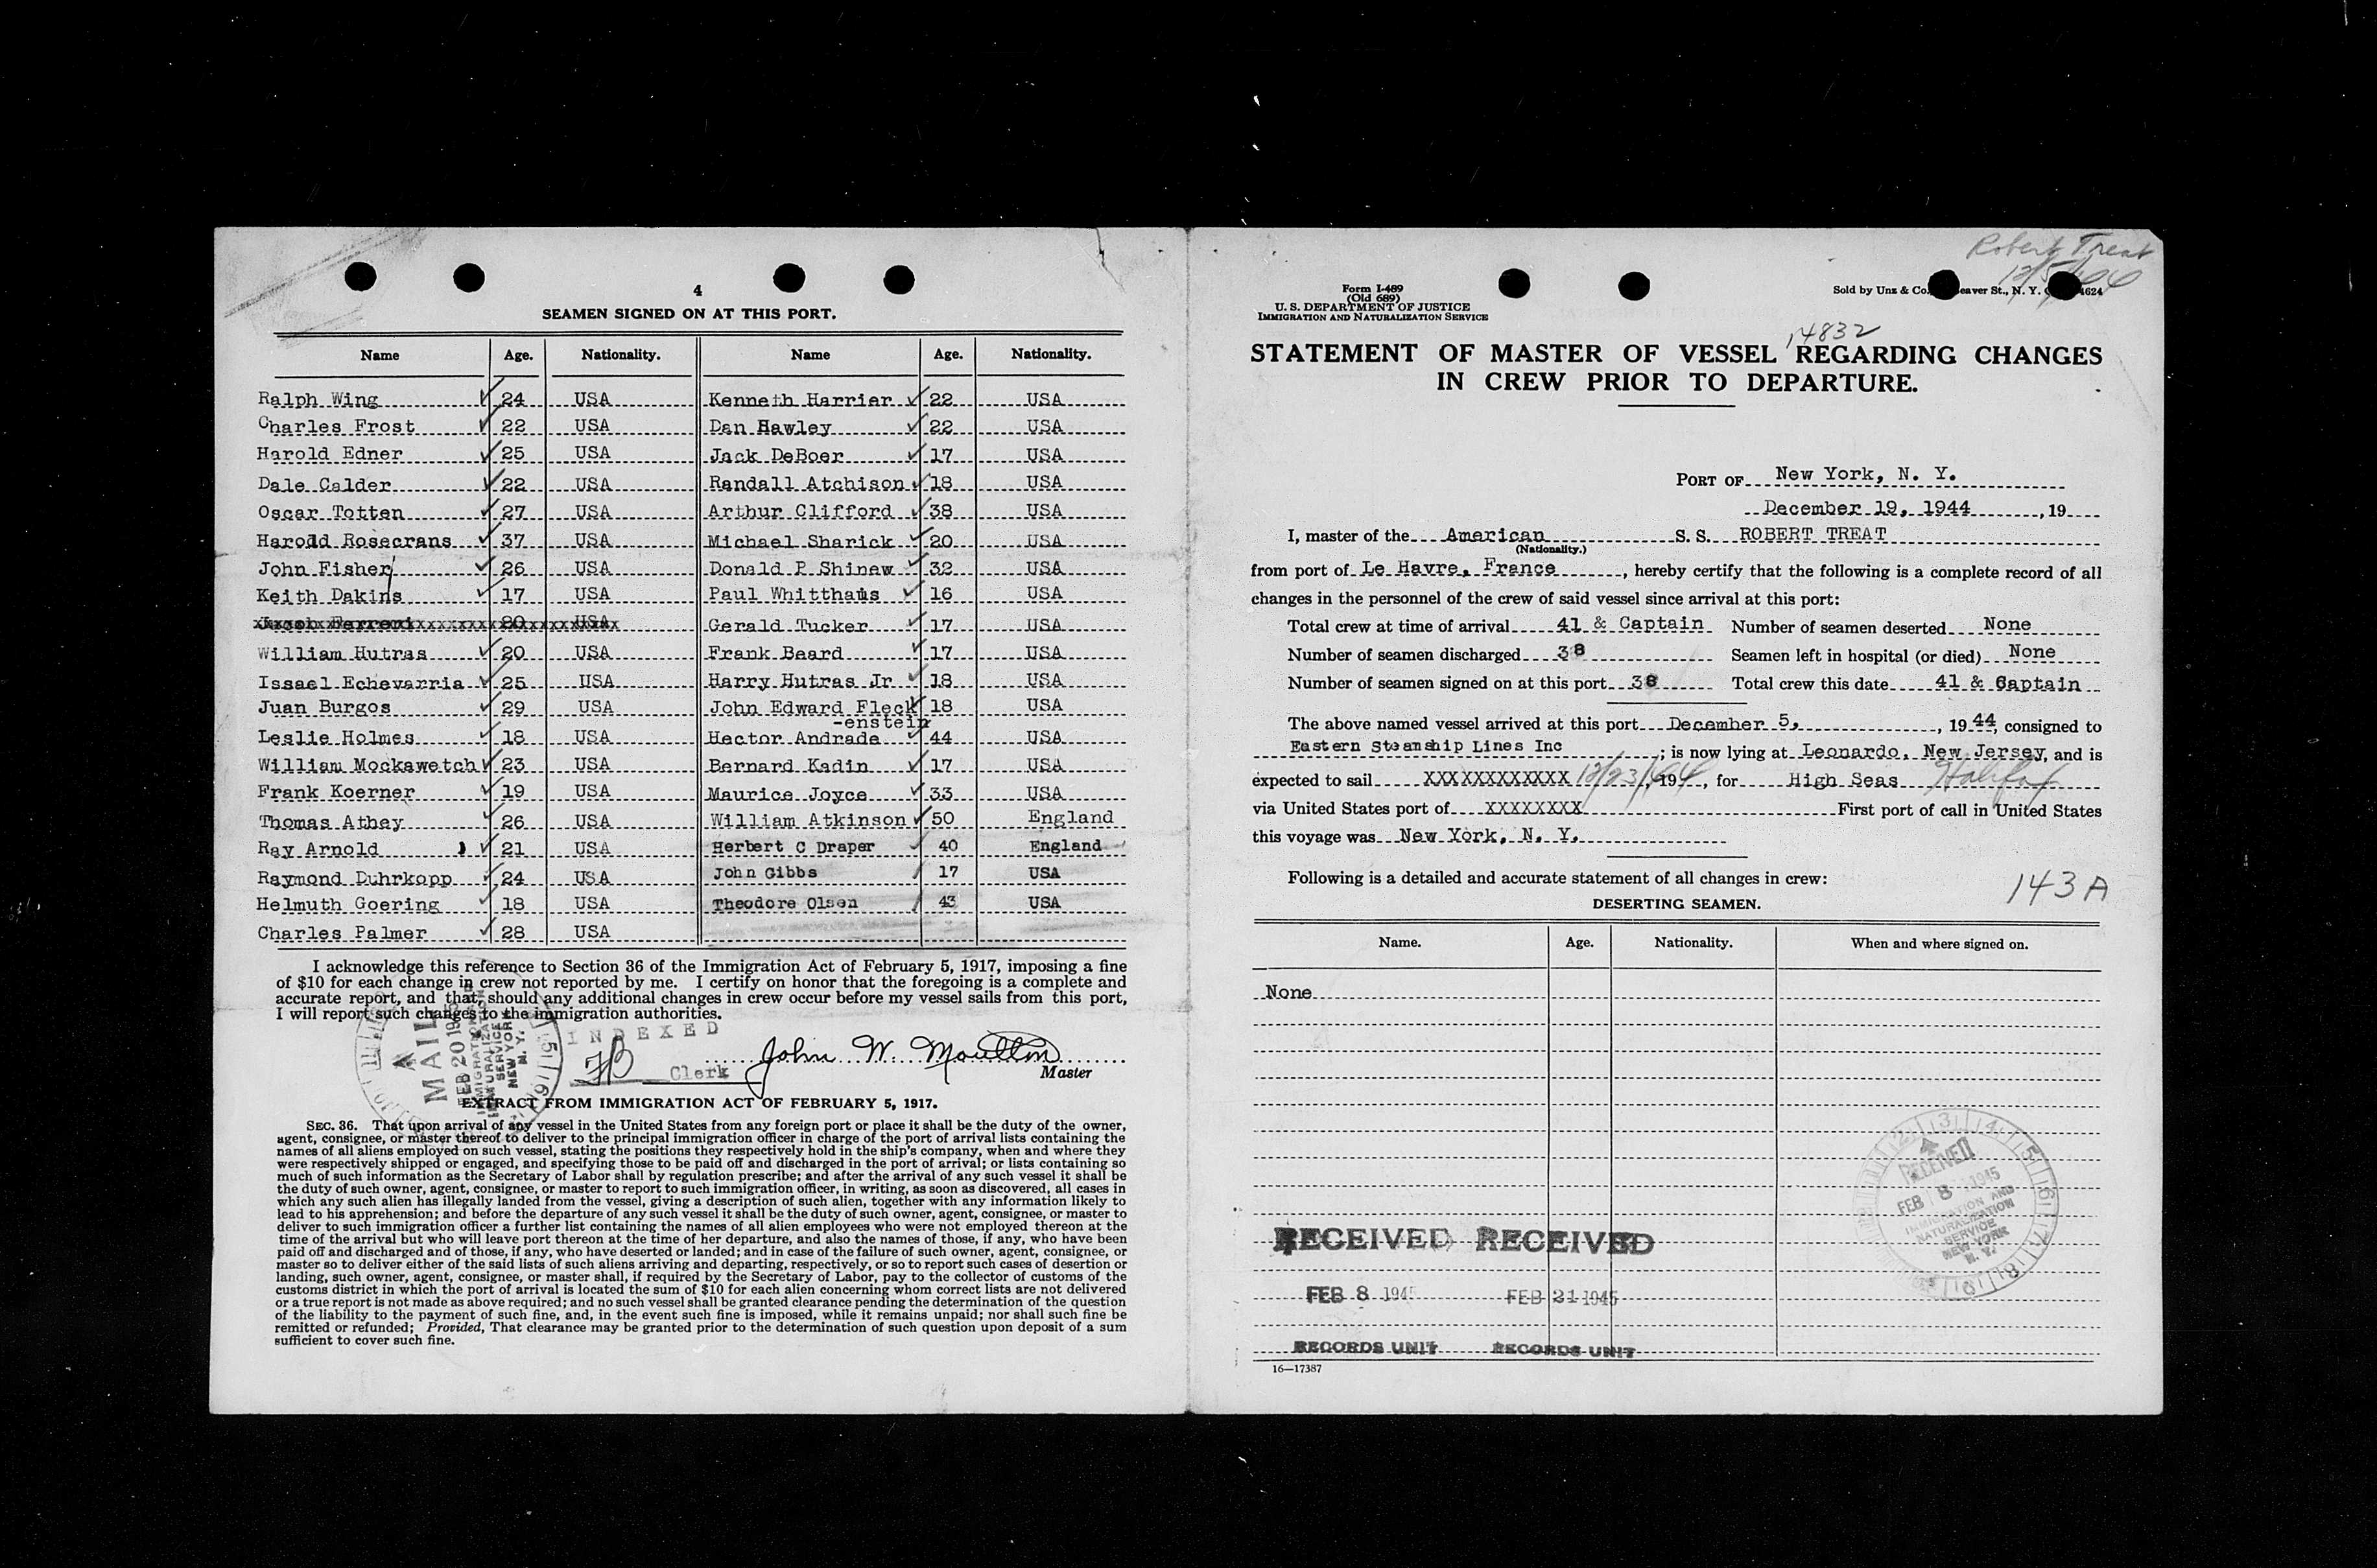 4
SEAMEN SIGNED ON AT THIS PORT.
Name Age. Nationality. Name Age. Nationality.
Ralph Wing 24 USA Kenneth Harrier 22 USA
Charles Frost 22 USA Dan Hawley 22 USA
Harold Edner 25 USA Jack DeBoer 17 USA
Dale Calder 22 USA Randall Atchison 18 USA
Oscar Totten 27 USA Arthur Clifford 38 USA
Harold Rosecrans 37 USA Michael Sharick 20 USA
John Fisher 26 USA Donald P Shinew 32 USA
Keith Dakins 17 USA Paul Whitthaus 16 USA
USA Gerald Tucker 17 USA
William Hutras 20 USA Frank Beard 17 USA
Issael Echevarria 25 USA Harry Hutras Jr 18 USA
Juan Burgos 29 USA John Edward Fleck 18 USA
-enstein
Leslie Holmes 18 USA Hector Andrade 44 USA
William Mockawetch 23 USA Bernard Kadin 17 USA
Frank Koerner 19 USA Maurice Joyce 33 USA
Thomas Athey 26 USA William Atkinson 50 England
Ray Arnold 21 USA Herbert C Draper 40 England
Raymond Duhrkopp 24 USA John Gibbs 17 USA
Helmuth Goering 18 USA Theodore Olsen 43 USA
Charles Palmer 28 USA
I acknowledge this reference to Section 36 of the Immigration Act of February 5, 1917, imposing a fine
of $10 for each change in crew not reported by me. I certify on honor that the foregoing is a complete and
accurate report, and that, should any additional changes in crew occur before my vessel sails from this port,
I will report such changes to the immigration authorities.
INDEXED
FB Clerk
John W. Moulton
Master
A
MAIL
FEB 20 1945
IMMIGRATION AND
NATURALIZATION
SERVICE
NEW YORK
N. Y.
EXTRACT FROM IMMIGRATION ACT OF FEBRUARY 5, 1917.
SEC. 36. That upon arrival of any vessel in the United States from any foreign port or place it shall be the duty of the owner,
agent, consignee, or master thereof to deliver to the principal immigration officer in charge of the port of arrival lists containing the
names of all aliens employed on such vessel, stating the positions they respectively hold in the ship's company, when and where they
were respectively shipped or engaged, and specifying those to be paid off and discharged in the port of arrival; or lists containing so
much of such information as the Secretary of Labor shall by regulation prescribe; and after the arrival of any such vessel it shall be
the duty of such owner, agent, consignee, or master to report to such immigration officer, in writing, as soon as discovered, all cases in
which any such alien has illegally landed from the vessel, giving a description of such alien, together with any information likely to
lead to his apprehension; and before the departure of any such vessel it shall be the duty of such owner, agent, consignee, or master to
deliver to such immigration officer a further list containing the names of all alien employees who were not employed thereon at the
time of the arrival but who will leave port thereon at the time of her departure, and also the names of those, if any, who have been
paid off and discharged and of those, if any, who have deserted or landed; and in case of the failure of such owner, agent, consignee, or
master so to deliver either of the said lists of such aliens arriving and departing, respectively, or so to report such cases of desertion or
landing, such owner, agent, consignee, or master shall, if required by the Secretary of Labor, pay to the collector of customs of the
customs district in which the port of arrival is located the sum of $10 for each alien concerning whom correct lists are not delivered
or a true report is not made as above required; and no such vessel shall be granted clearance pending the determination of the question
of the liability to the payment of such fine, and, in the event such fine is imposed, while it remains unpaid; nor shall such fine be
remitted or refunded; Provided, That clearance may be granted prior to the determination of such question upon deposit of a sum
sufficient to cover such fine.
Robert Treat
12/5/44
Form I-489
(Old 689)
U. S. DEPARTMENT OF JUSTICE
IMMIGRATION AND NATURALIZATION SERVICE
Sold by Unz & Co. eaver St., N. Y. 4624
14832
STATEMENT OF MASTER OF VESSEL REGARDING CHANGES
IN CREW PRIOR TO DEPARTURE.
PORT OF New York, N. Y.
December 19, 1944, 19
I, master of the American S. S. ROBERT TREAT
(Nationality.)
from port of Le Havre, France, hereby certify that the following is a complete record of all
changes in the personnel of the crew of said vessel since arrival at this port:
Total crew at time of arrival 41 & Captain Number of seamen deserted None
Number of seamen discharged 38 Seamen left in hospital (or died) None
Number of seamen signed on at this port 38 Total crew this date 41 & Captain
The above named vessel arrived at this port December 5, , 1944, consigned to
Eastern Steamship Lines Inc ; is now lying at Leonardo, New Jersey, and is
expected to sail XXXXXXXXXXXX 12/23/44, 194, for High Seas Halifax
via United States port of XXXXXXXX First port of call in United States
this voyage was New York, N. Y.
Following is a detailed and accurate statement of all changes in crew:
143A
DESERTING SEAMEN.
Name. Age. Nationality. When and where signed on.
None
RECEIVED
FEB 8 1945
IMMIGRATION AND
NATURALIZATION
SERVICE
NEW YORK
N. Y.
RECEIVED RECEIVED
FEB 8 1945 FEB 21 1945
RECORDS UNIT RECORDS UNIT
16—17387